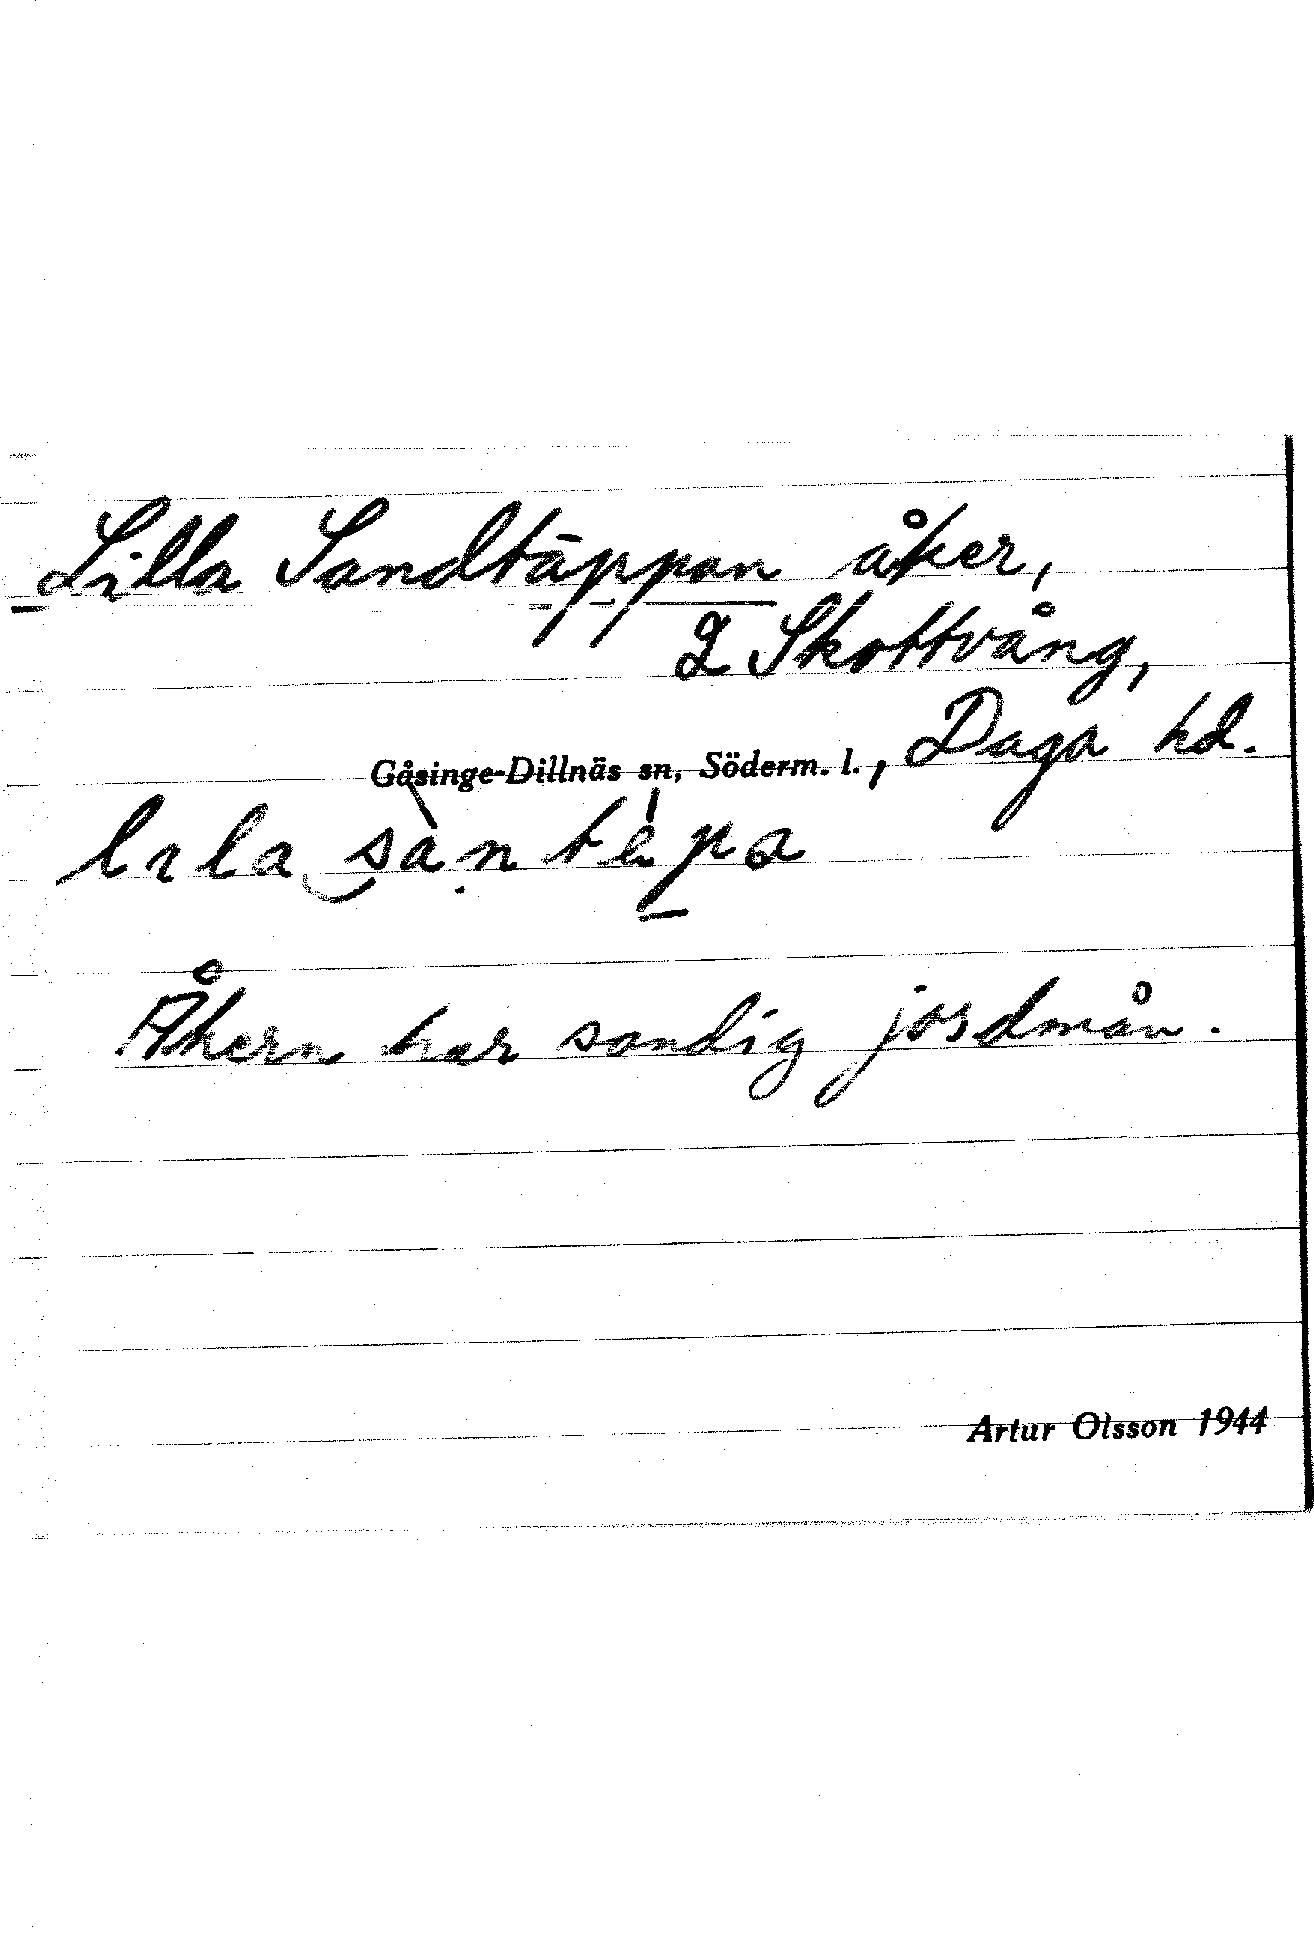 Lilla Sandtäppan åker,
2 Skottvång,
Gåsinge-Dillnäs sn, Söderm. l., Daga hd.
Åkern har sandig jordmån.
Artur Olsson 1944